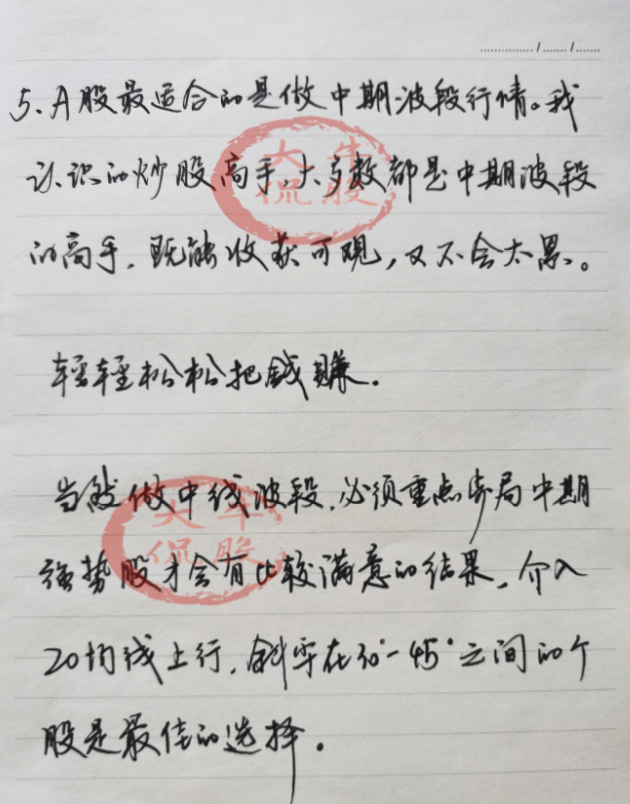 5、A股最适合的是做中期波段行情。我
认识的炒股高手、大多数都是中期波段
的高手，既能收获可观，又不会太累。
轻轻松松把钱赚。
当然做中线波段，必须重点布局中期
强势股才会有比较满意的结果，介入
20均线上行，斜率在30°-45°之间的个
股是最佳的选择。
大牛
侃股
大牛
侃股